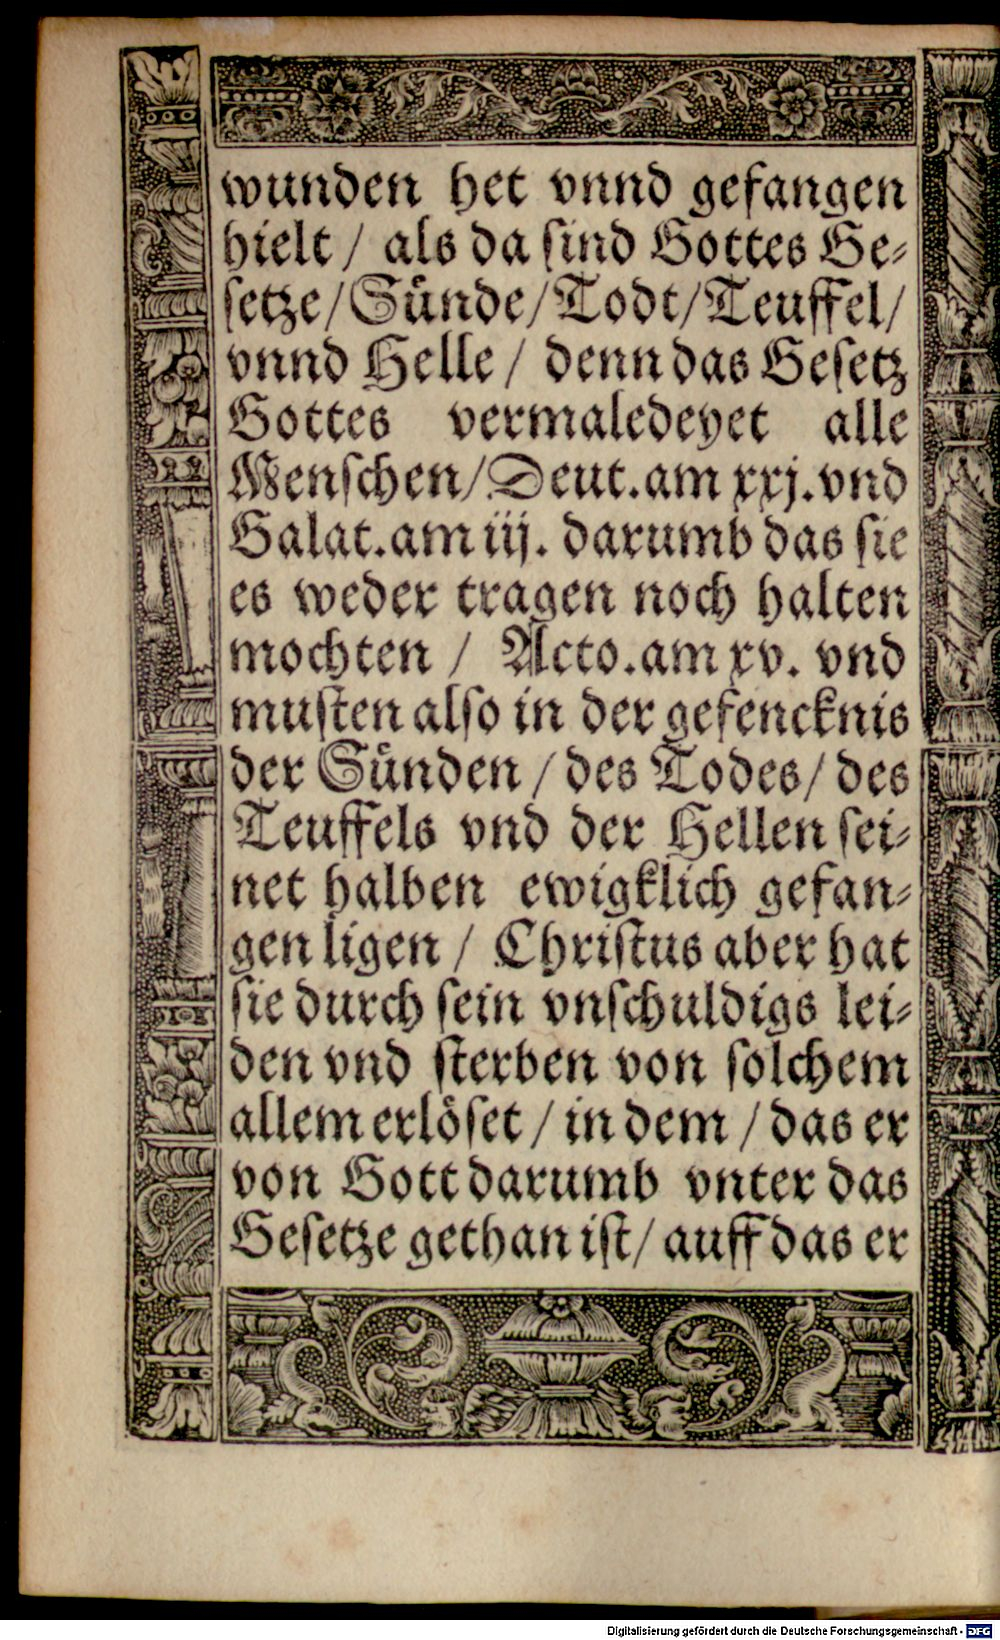 wunden het vnnd gefangen
hielt / als da sind Gottes Ge-
setze/Sünde/Todt/Teuffel/
vnnd Helle / denn das Gesetz
Gottes vermaledeyet alle
Menschen/Deut.am xxj.vnd
Galat.am iij. darumb das sie
es weder tragen noch halten
mochten / Acto.am xv. vnd
musten also in der gefencknis
der Sünden / des Todes/ des
Teuffels vnd der Hellen sei-
net halben ewigklich gefan-
gen ligen / Christus aber hat
sie durch sein vnschuldigs lei-
den vnd sterben von solchem
allem erlöset / in dem / das er
von Gott darumb vnter das
Gesetze gethan ist/ auff das er
Digitalisierung gefördert durch die Deutsche Forschungsgemeinschaft - DFG